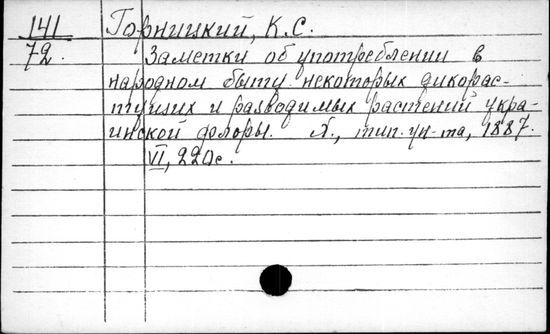 141 Горницкий, К.С.
72. Заметки об употреблении в
народном быту некоторых дикорас-
тущих и разводимых растений укра-
инской флоры. Х., тип. ун-та, 1887.
VI, 220с.